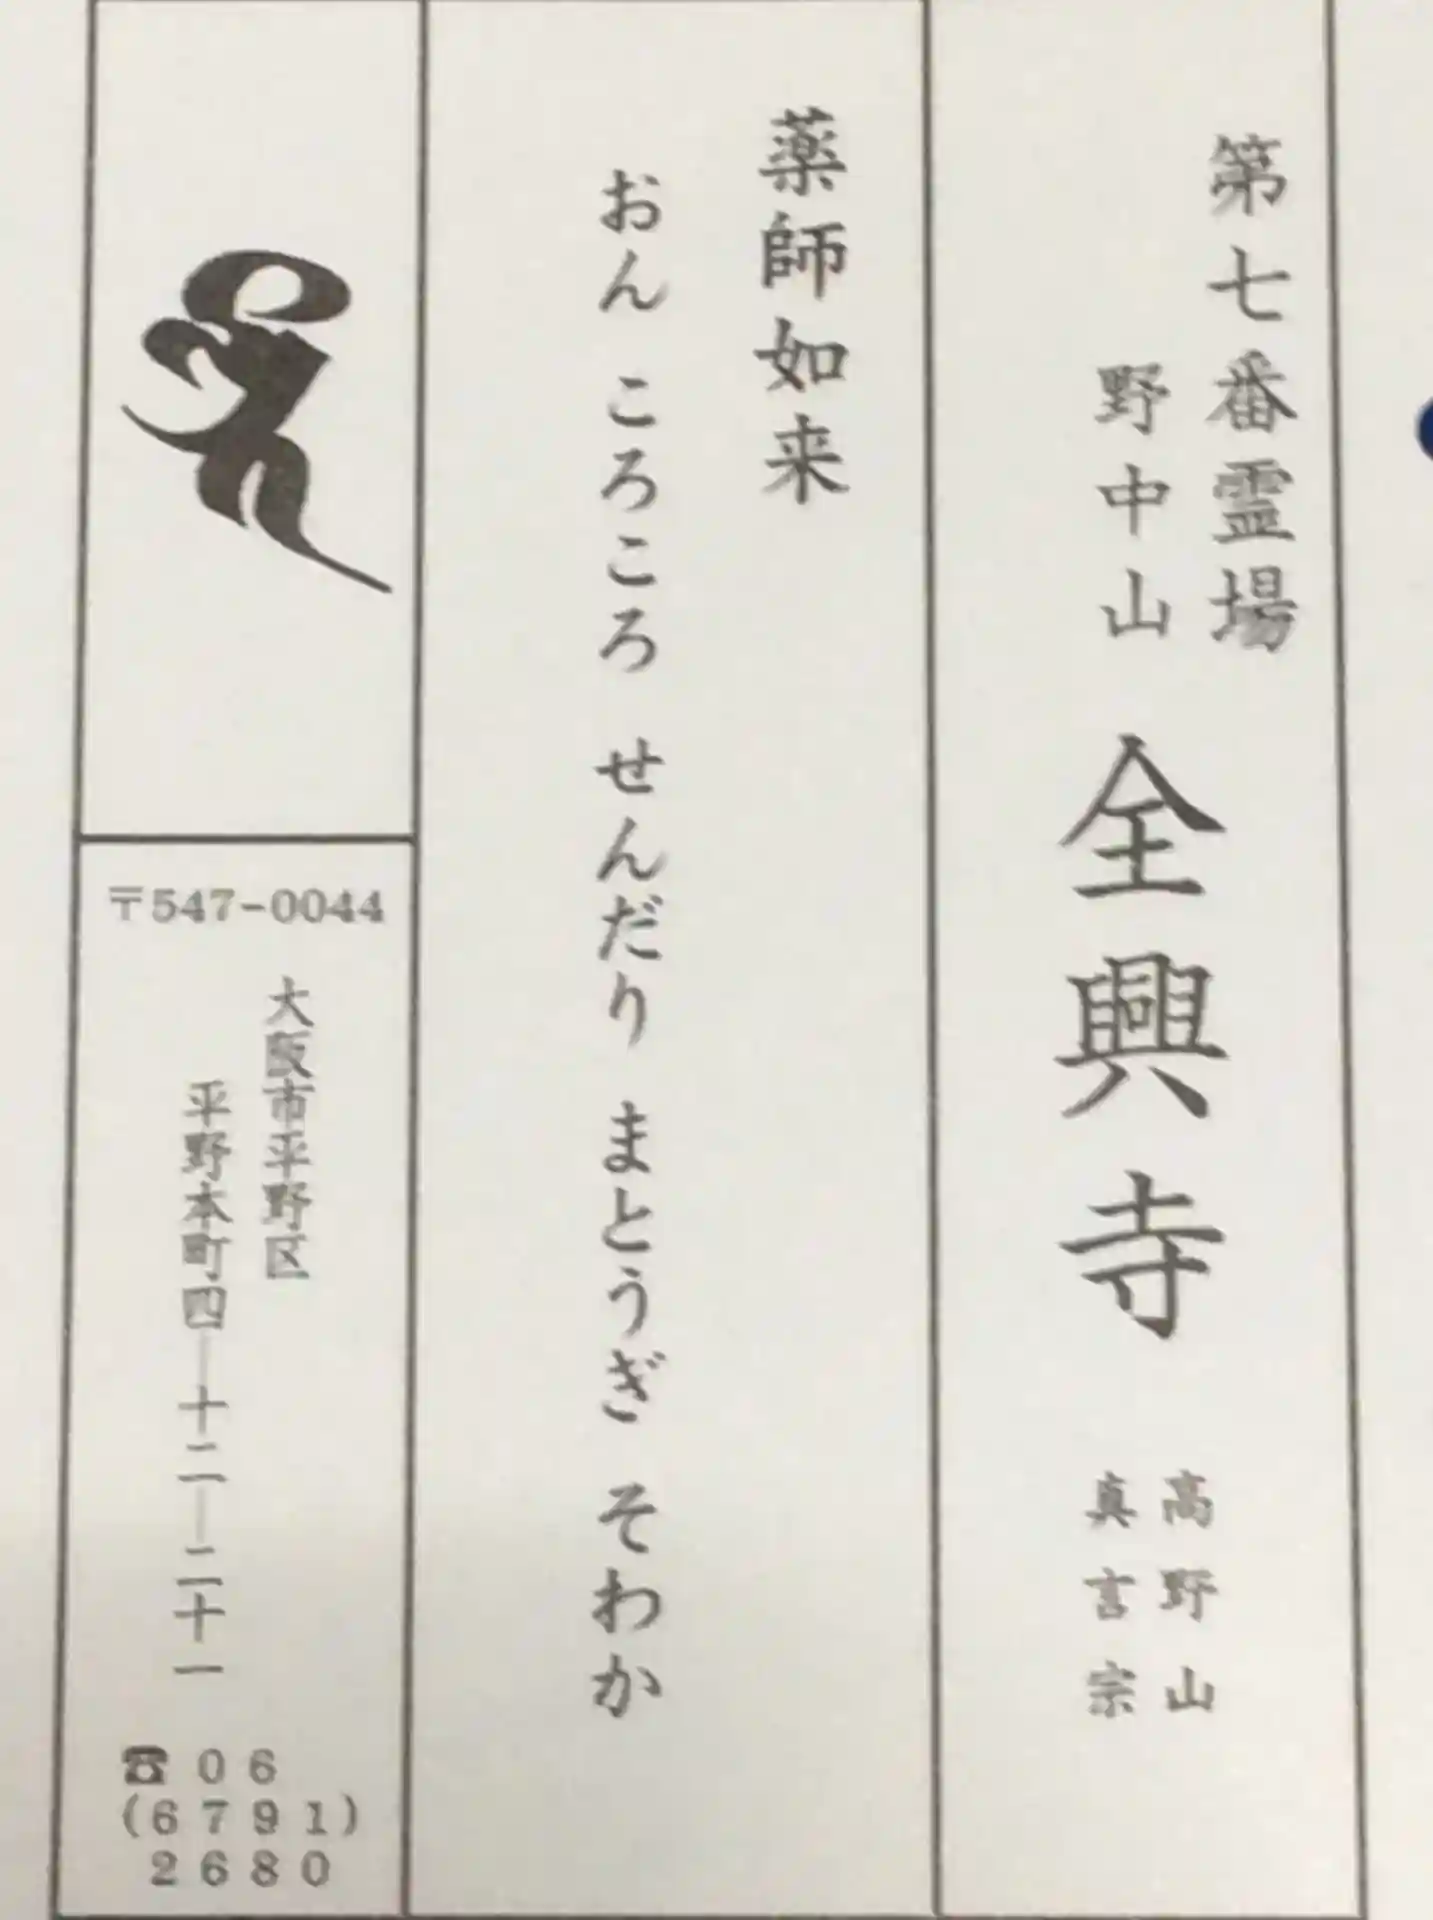 第七番霊場
野中山
全興寺
高野山
真言宗
薬師如来
おん ころころ せんだり まとうぎ そわか
〒547-0044
大阪市平野区
平野本町四―十二―二十一
☎06
(6791)
2680